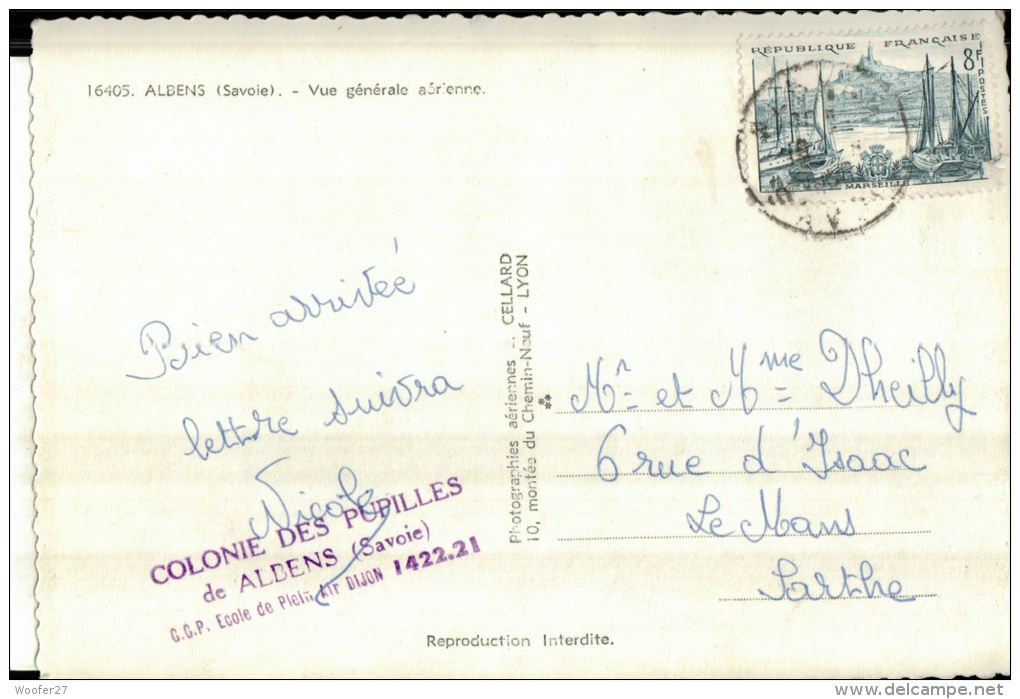 16405. ALBENS (Savoie). - Vue générale aérienne.
RÉPUBLIQUE FRANÇAISE
8F
POSTES
MARSEILLE
Bien arrivée
lettre suivra
Nicole
COLONIE DES PUPILLES
de ALBENS (Savoie)
C.C.P. Ecole de Plein Air DIJON 1422.21
Photographies aériennes - CELLARD
10, montée du Chemin-Neuf - LYON
**
Mr et Mme Dheilly
6 rue d'Isaac
Le Mans
Sarthe
Reproduction Interdite.
Woofer27
delcampe.net